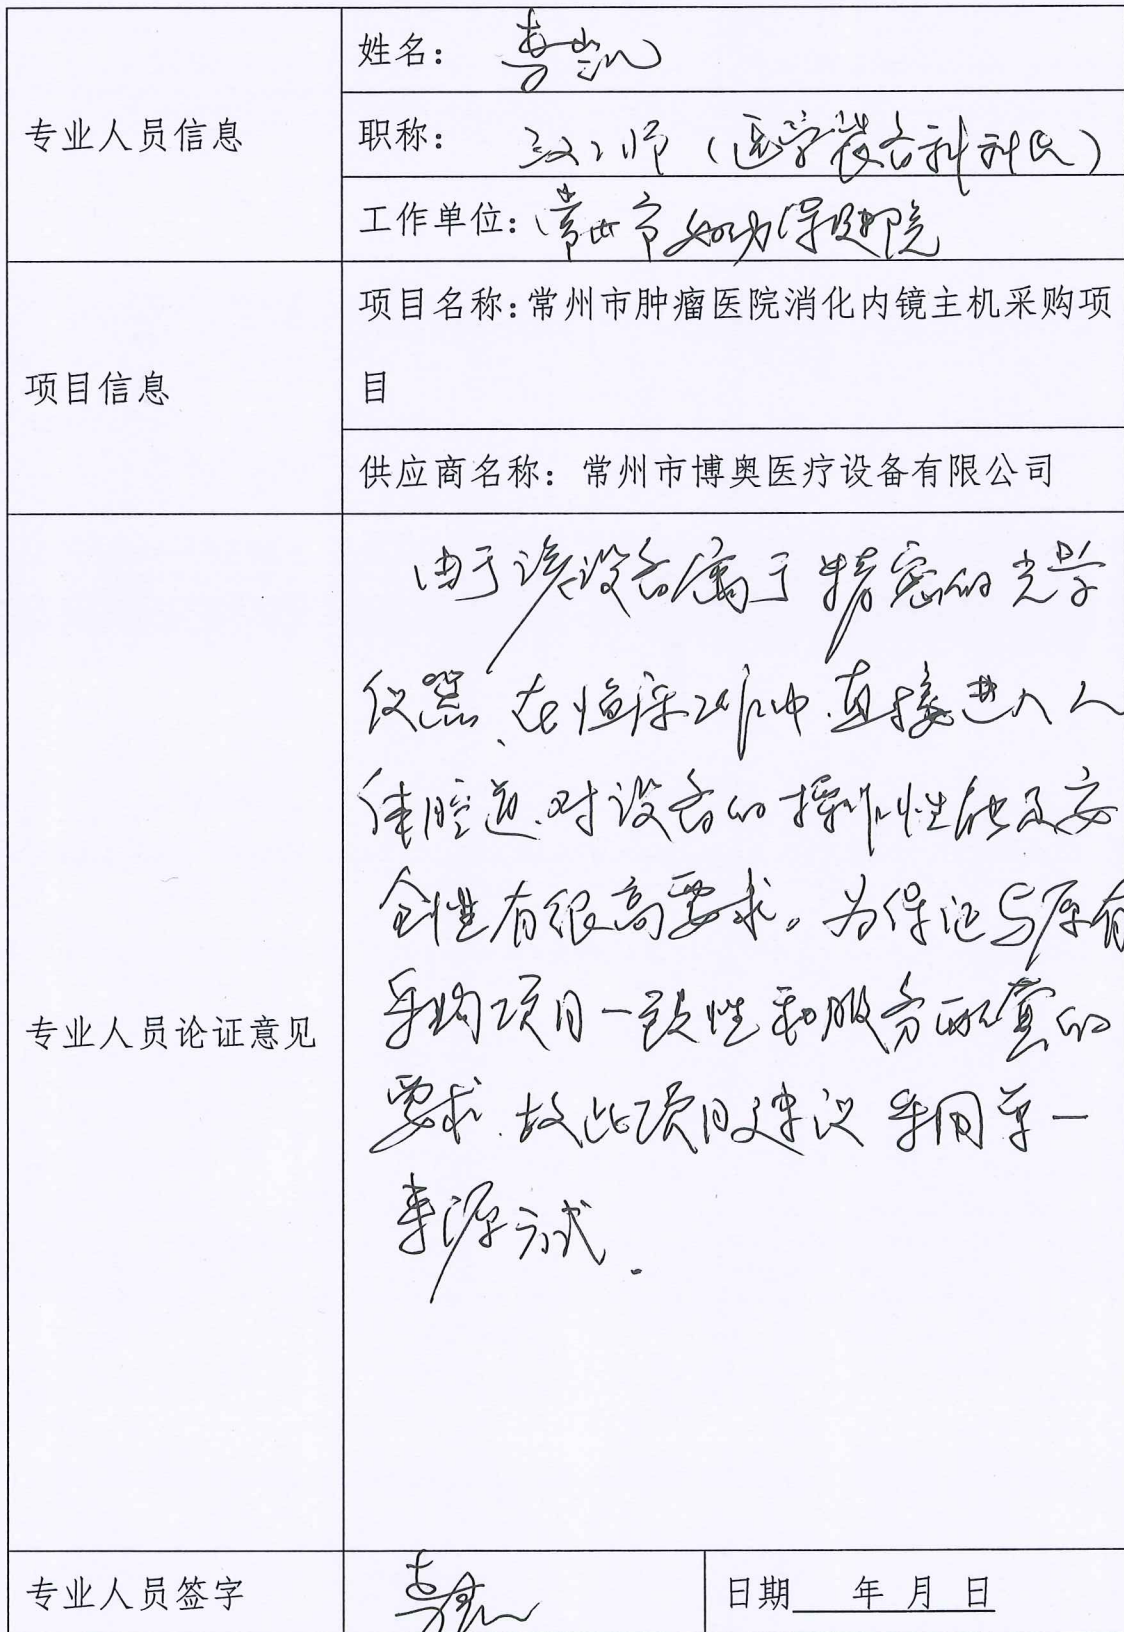 专业人员信息
姓名：李凯
职称：工程师（医学装备科科长）
工作单位：常州市妇幼保健院
项目信息
项目名称：常州市肿瘤医院消化内镜主机采购项
目
供应商名称：常州市博奥医疗设备有限公司
专业人员论证意见
由于该设备属于精密的光学
仪器、在临床工作中直接进入人
体腔道，对设备的操作性能及安
全性有很高要求。为保证与原有
采购项目一致性和服务配套的
要求，故此项目建议采用单一
来源方式．
专业人员签字
日期　年 月 日